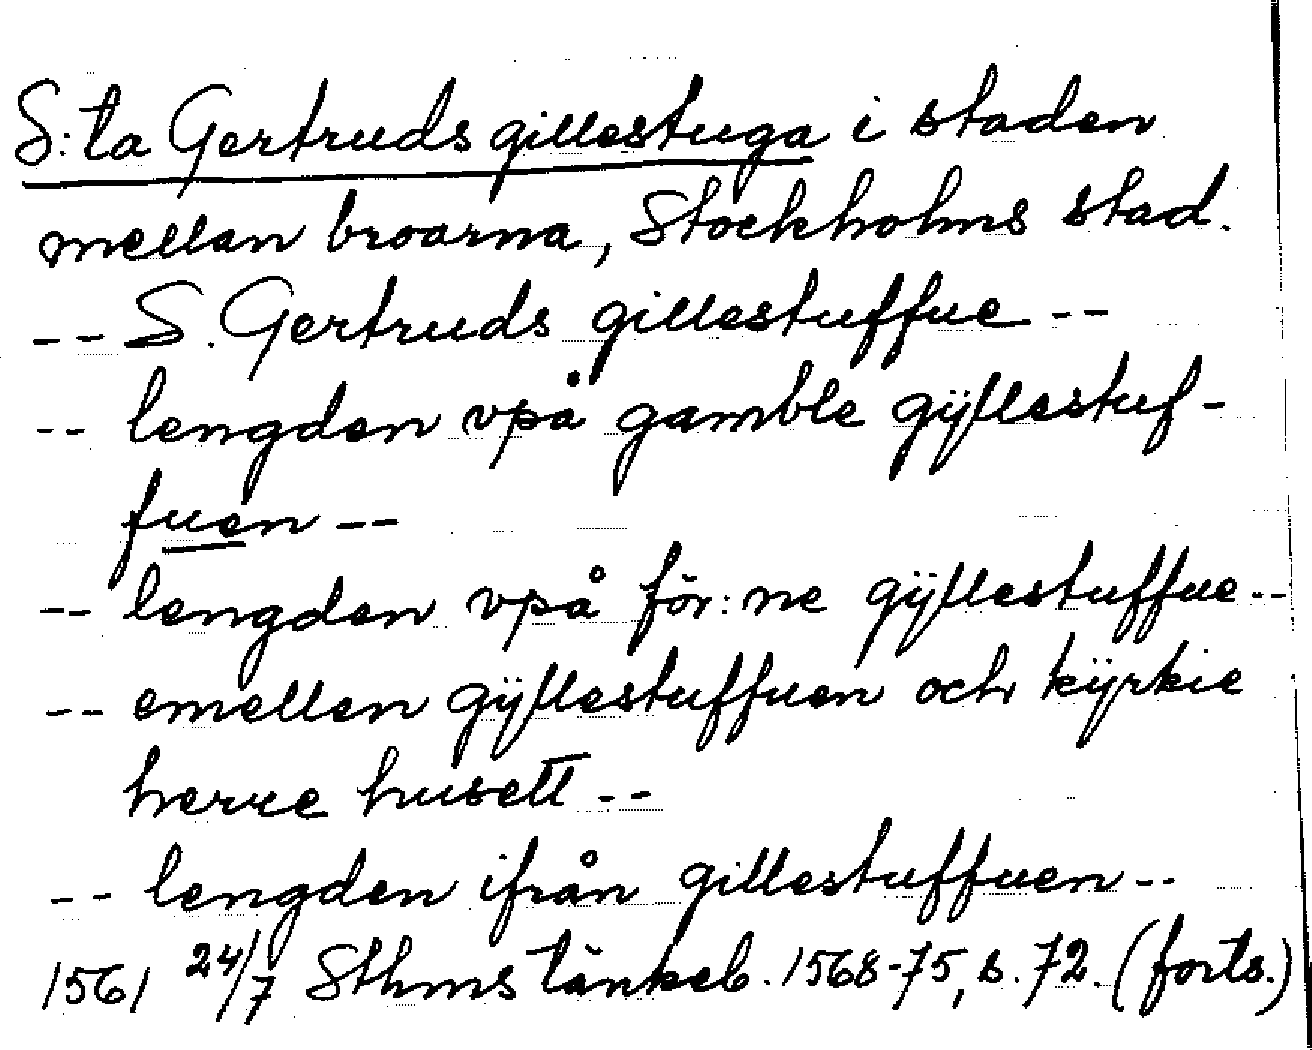 S:ta Gertruds gillestuga i staden
mellan broarna, Stockholms stad.
-- S. Gertruds gillestuffue --
-- lengden vpå gamble gÿllestuf-
fuen --
-- lengden vpå för:ne gÿllestuffue --
-- emellen gÿllestuffuen och kÿrkie
herre husett --
-- lengden ifrån gillestuffuen --
1561 24/7 Sthms tänkeb. 1568-75, s. 72. (forts.)